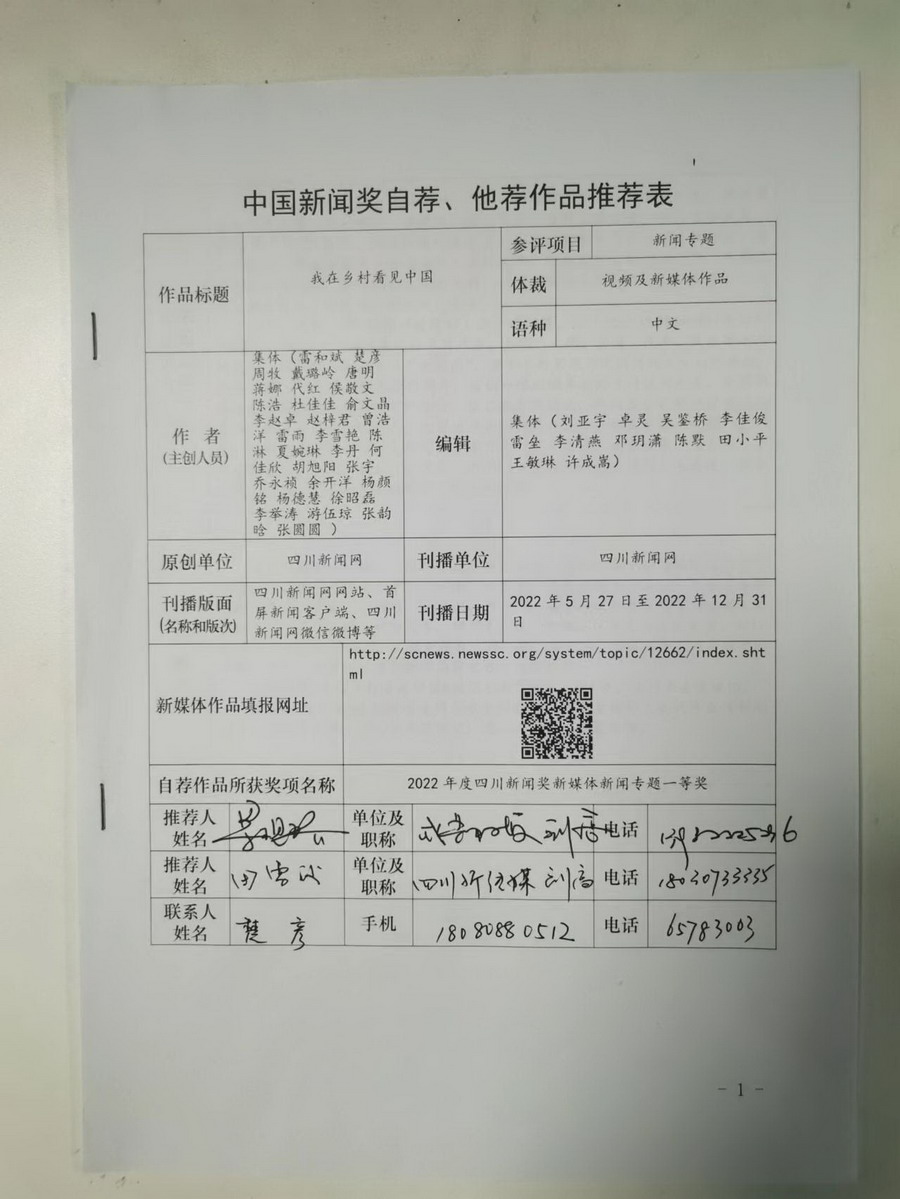 中国新闻奖自荐、他荐作品推荐表
作品标题
我在乡村看见中国
参评项目
新闻专题
体裁
视频及新媒体作品
语种
中文
作 者
(主创人员)
集体（雷和斌 楚彦
周牧 戴璐岭 唐明
蒋娜 代红 侯敬文
陈浩 杜佳佳 俞文晶
李赵卓 赵梓君 曾浩
洋 雷雨 李雪艳 陈
淋 夏婉琳 李丹 何
佳欣 胡旭阳 张宇
乔永桢 余开洋 杨颜
铭 杨德慧 徐昭磊
李举涛 游伍琼 张韵
晗 张圆圆 ）
编辑
集体（刘亚宇 卓灵 吴鉴桥 李佳俊
雷垒 李清燕 邓玥潇 陈默 田小平
王敏琳 许成嵩）
原创单位
四川新闻网
刊播单位
四川新闻网
刊播版面
(名称和版次)
四川新闻网网站、首
屏新闻客户端、四川
新闻网微信微博等
刊播日期
2022 年 5 月 27 日至 2022 年 12 月 31
日
新媒体作品填报网址
http://scnews.newssc.org/system/topic/12662/index.sht
ml
自荐作品所获奖项名称
2022 年度四川新闻奖新媒体新闻专题一等奖
推荐人
姓名
单位及
职称
电话
推荐人
姓名
单位及
职称
四川新传媒 副高
电话
18030733335
联系人
姓名
楚彦
手机
18080880512
电话
65783003
- 1 -